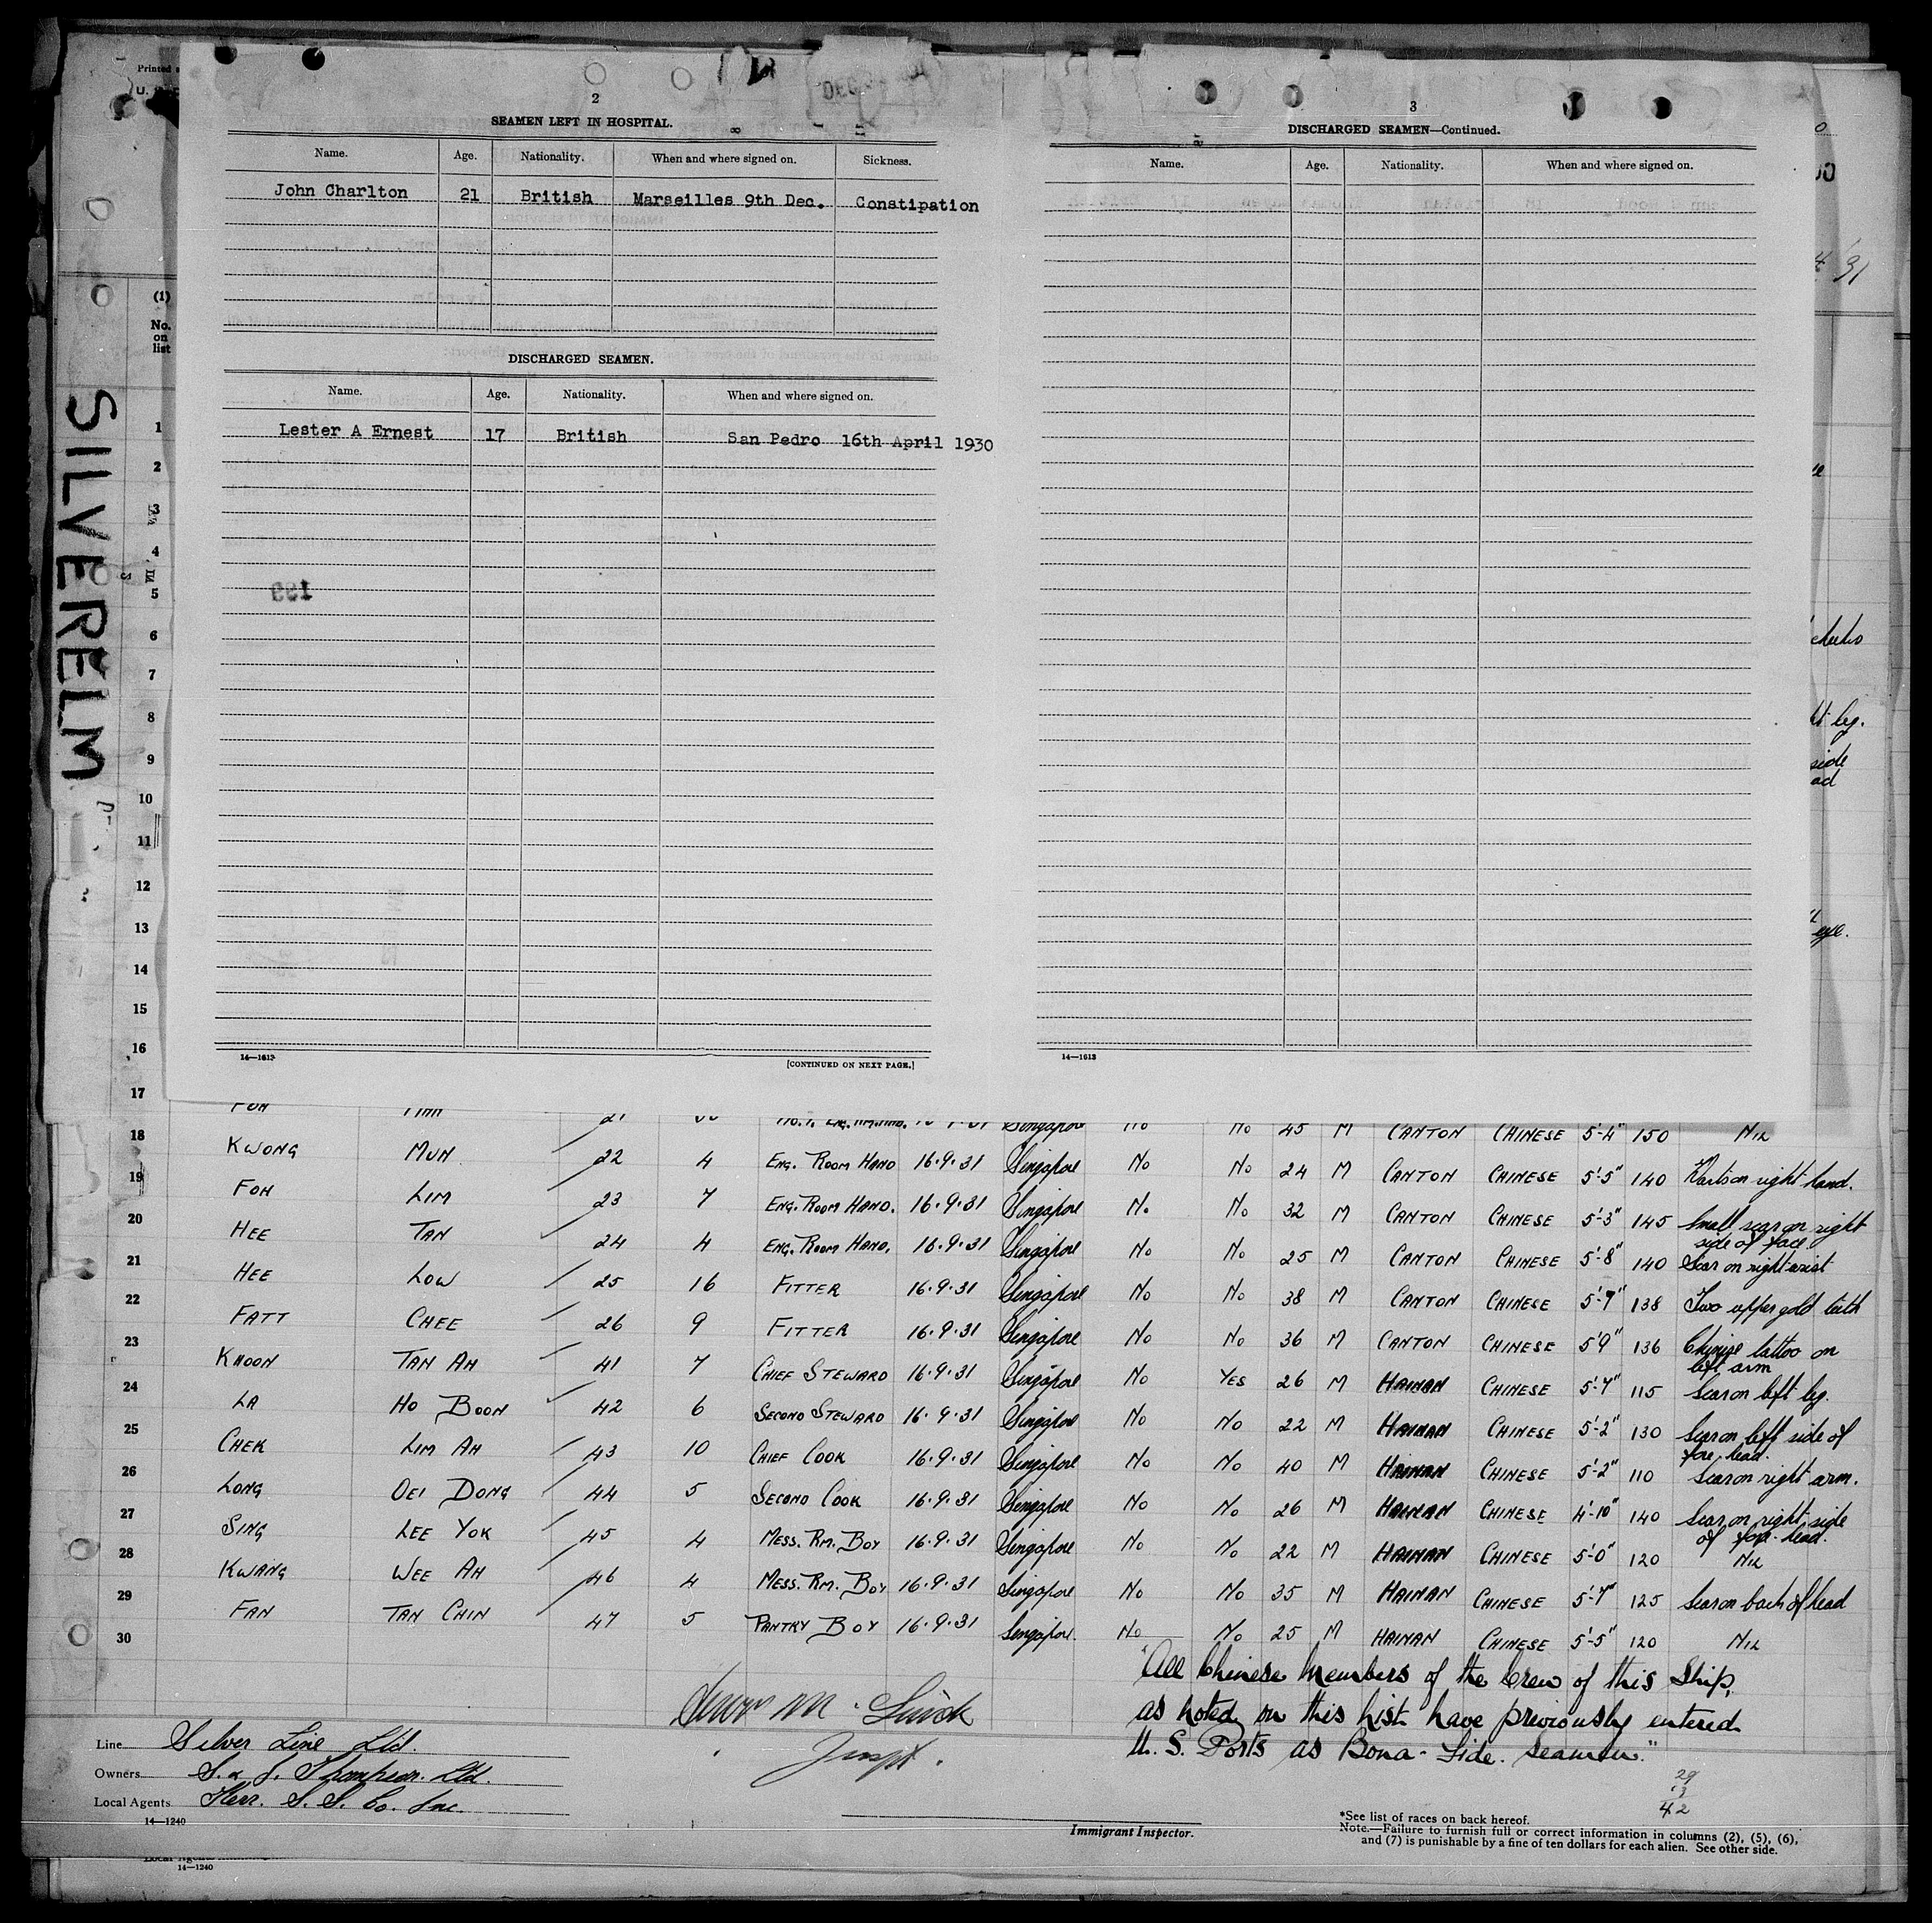 2
SEAMEN LEFT IN HOSPITAL.
Name. Age. Nationality. When and where signed on. Sickness.
John Charlton 21 British Marseilles 9th Dec. Constipation
DISCHARGED SEAMEN.
Name. Age. Nationality. When and where signed on.
Lester A Ernest 17 British San Pedro 16th April 1930
14—1613
[CONTINUED ON NEXT PAGE.]
3
DISCHARGED SEAMEN—Continued.
Name. Age. Nationality. When and where signed on.
14—1613
Printed
(1)
No. on list
SILVERELM
1
2
3
4
5
6
7
8
9
10
11
12
13
14
15
16
17
Singapore No 45 M CANTON CHINESE 5'-4" 150 NIL
18 KWONG MUN 22 4 ENG. ROOM HAND 16.9.31 Singapore No No 24 M CANTON CHINESE 5'-5" 140 Warts on right hand.
19 FOH LIM 23 7 ENG. ROOM HAND. 16.9.31 Singapore No No 32 M CANTON CHINESE 5'-3" 145 Small scar on right side of face
20 HEE TAN 24 4 ENG. ROOM HAND. 16.9.31 Singapore No No 25 M CANTON CHINESE 5'-8" 140 Scar on right wrist
21 HEE LOW 25 16 FITTER 16.9.31 Singapore No No 38 M CANTON CHINESE 5'-7" 138 Two upper gold teeth
22 FATT CHEE 26 9 FITTER 16.9.31 Singapore No No 36 M CANTON CHINESE 5'9" 136 Chinese tattoo on left arm
23 KHOON TAN AH 41 7 CHIEF STEWARD 16.9.31 Singapore No YES 26 M HAINAN CHINESE 5'-7" 115 Scar on left leg.
24 LA HO BOON 42 6 SECOND STEWARD 16.9.31 Singapore No No 22 M HAINAN CHINESE 5'-2" 130 Scar on left side of fore-head.
25 CHEK LIM AH 43 10 CHIEF COOK 16.9.31 Singapore No No 40 M HAINAN CHINESE 5'-2" 110 Scar on right arm.
26 LONG OEI DONG 44 5 SECOND COOK 16.9.31 Singapore No No 26 M HAINAN CHINESE 4'-10" 140 Scar on right side of fore-head.
27 SING LEE YOK 45 4 MESS. RM. BOY 16.9.31 Singapore No No 22 M HAINAN CHINESE 5'-0" 120 NIL
28 KWANG WEE AH 46 4 MESS. RM. BOY 16.9.31 Singapore No No 35 M HAINAN CHINESE 5'-7" 125 Scar on back of head
29 FAN TAN CHIN 47 5 PANTRY BOY 16.9.31 Singapore. No No 25 M HAINAN CHINESE 5'-5" 120 NIL
30
"All Chinese Members of the Crew of this Ship,
as noted on this list have previously entered
U. S. Ports as Bona-fide. seamen."
Line Silver Line Ltd.
Owners S. & J. Thompson. Ltd.
Local Agents Kerr. S. S. Co. Inc.
14—1240
Immigrant Inspector.
29
13
42
*See list of races on back hereof.
Note.—Failure to furnish full or correct information in columns (2), (5), (6),
and (7) is punishable by a fine of ten dollars for each alien. See other side.
14—1240